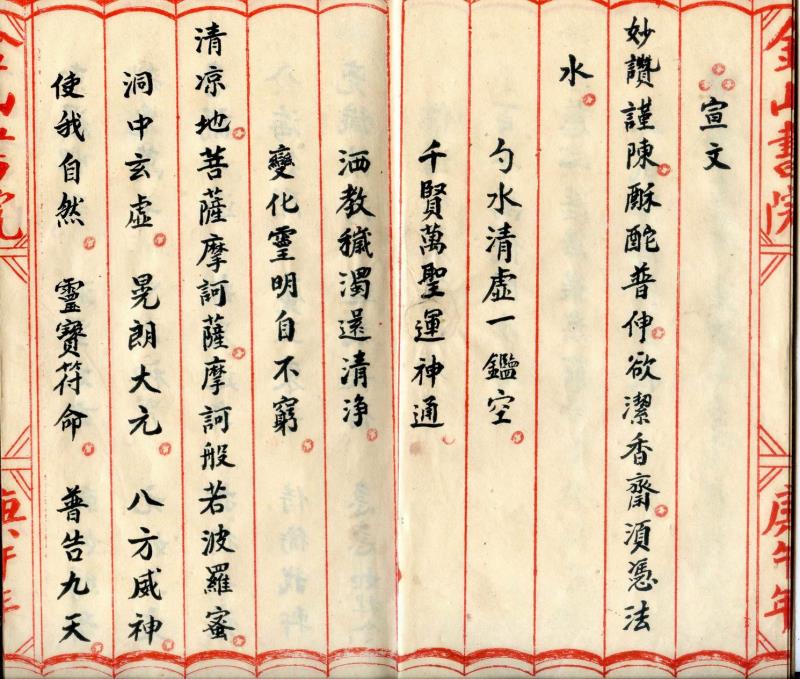 金山書院
庚午年
宣文
妙讚謹陳酥酡普伸欲潔香齋須憑法
水
勺水清虛一鑑空
千賢萬聖運神通
洒教穢濁還清净
變化霊明自不窮
清凉地菩薩摩訶薩摩訶般若波羅蜜
洞中玄虛 晃朗大元 八方威神
使我自然 靈寶符命 普告九天
金山書院
庚午年